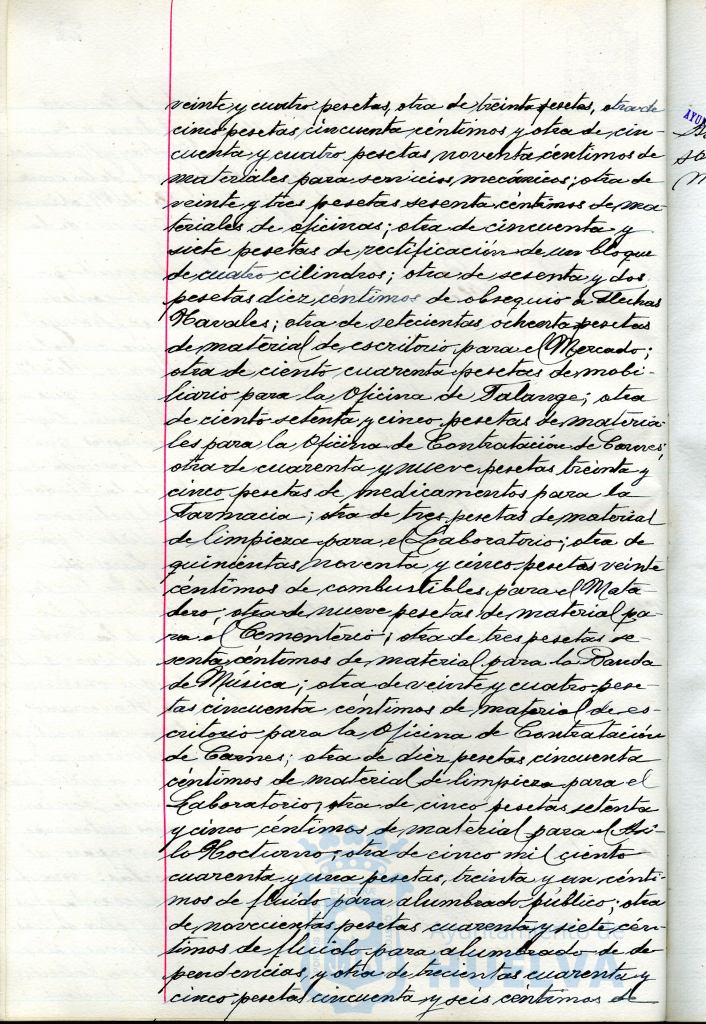 veinte y cuatro pesetas, otra de treinta pesetas, otra de
cinco pesetas cincuenta céntimos y otra de cin-
cuenta y cuatro pesetas noventa céntimos de
materiales para servicios mecánicos; otra de
veinte y tres pesetas sesenta céntimos de ma-
teriales de oficinas; otra de cincuenta y
siete pesetas de rectificación de un bloque
de cuatro cilindros; otra de sesenta y dos
pesetas diez céntimos de obsequio a Flechas
Navales; otra de setecientas ochenta pesetas
de material de escritorio para el Mercado;
otra de ciento cuarenta pesetas de mobi-
liario para la Oficina de Falange; otra
de ciento setenta y cinco pesetas de materia-
les para la Oficina de Contratación de Carnes;
otra de cuarenta y nueve pesetas treinta y
cinco pesetas de medicamentos para la
Farmacia; otra de tres pesetas de material
de limpieza para el Laboratorio; otra de
quinientas noventa y cinco pesetas veinte
céntimos de combustibles para el Mata-
dero; otra de nueve pesetas de material pa-
ra el Cementerio; otra de tres pesetas se-
senta céntimos de material para la Banda
de Música; otra de veinte y cuatro pese-
tas cincuenta céntimos de material de es-
critorio para la Oficina de Contratación
de Carnes; otra de diez pesetas cincuenta
céntimos de material de limpieza para el
Laboratorio; otra de cinco pesetas setenta
y cinco céntimos de material para el Asi-
lo Nocturno; otra de cinco mil ciento
cuarenta y una pesetas, treinta y un cénti-
mos de fluído para alumbrado público; otra
de novecientas pesetas cuarenta y siete cén-
timos de fluído para alumbrado de de-
pendencias, y otra de trecientas cuarenta y
cinco pesetas cincuenta y seis céntimos de
Ayuntamiento de
HUELVA